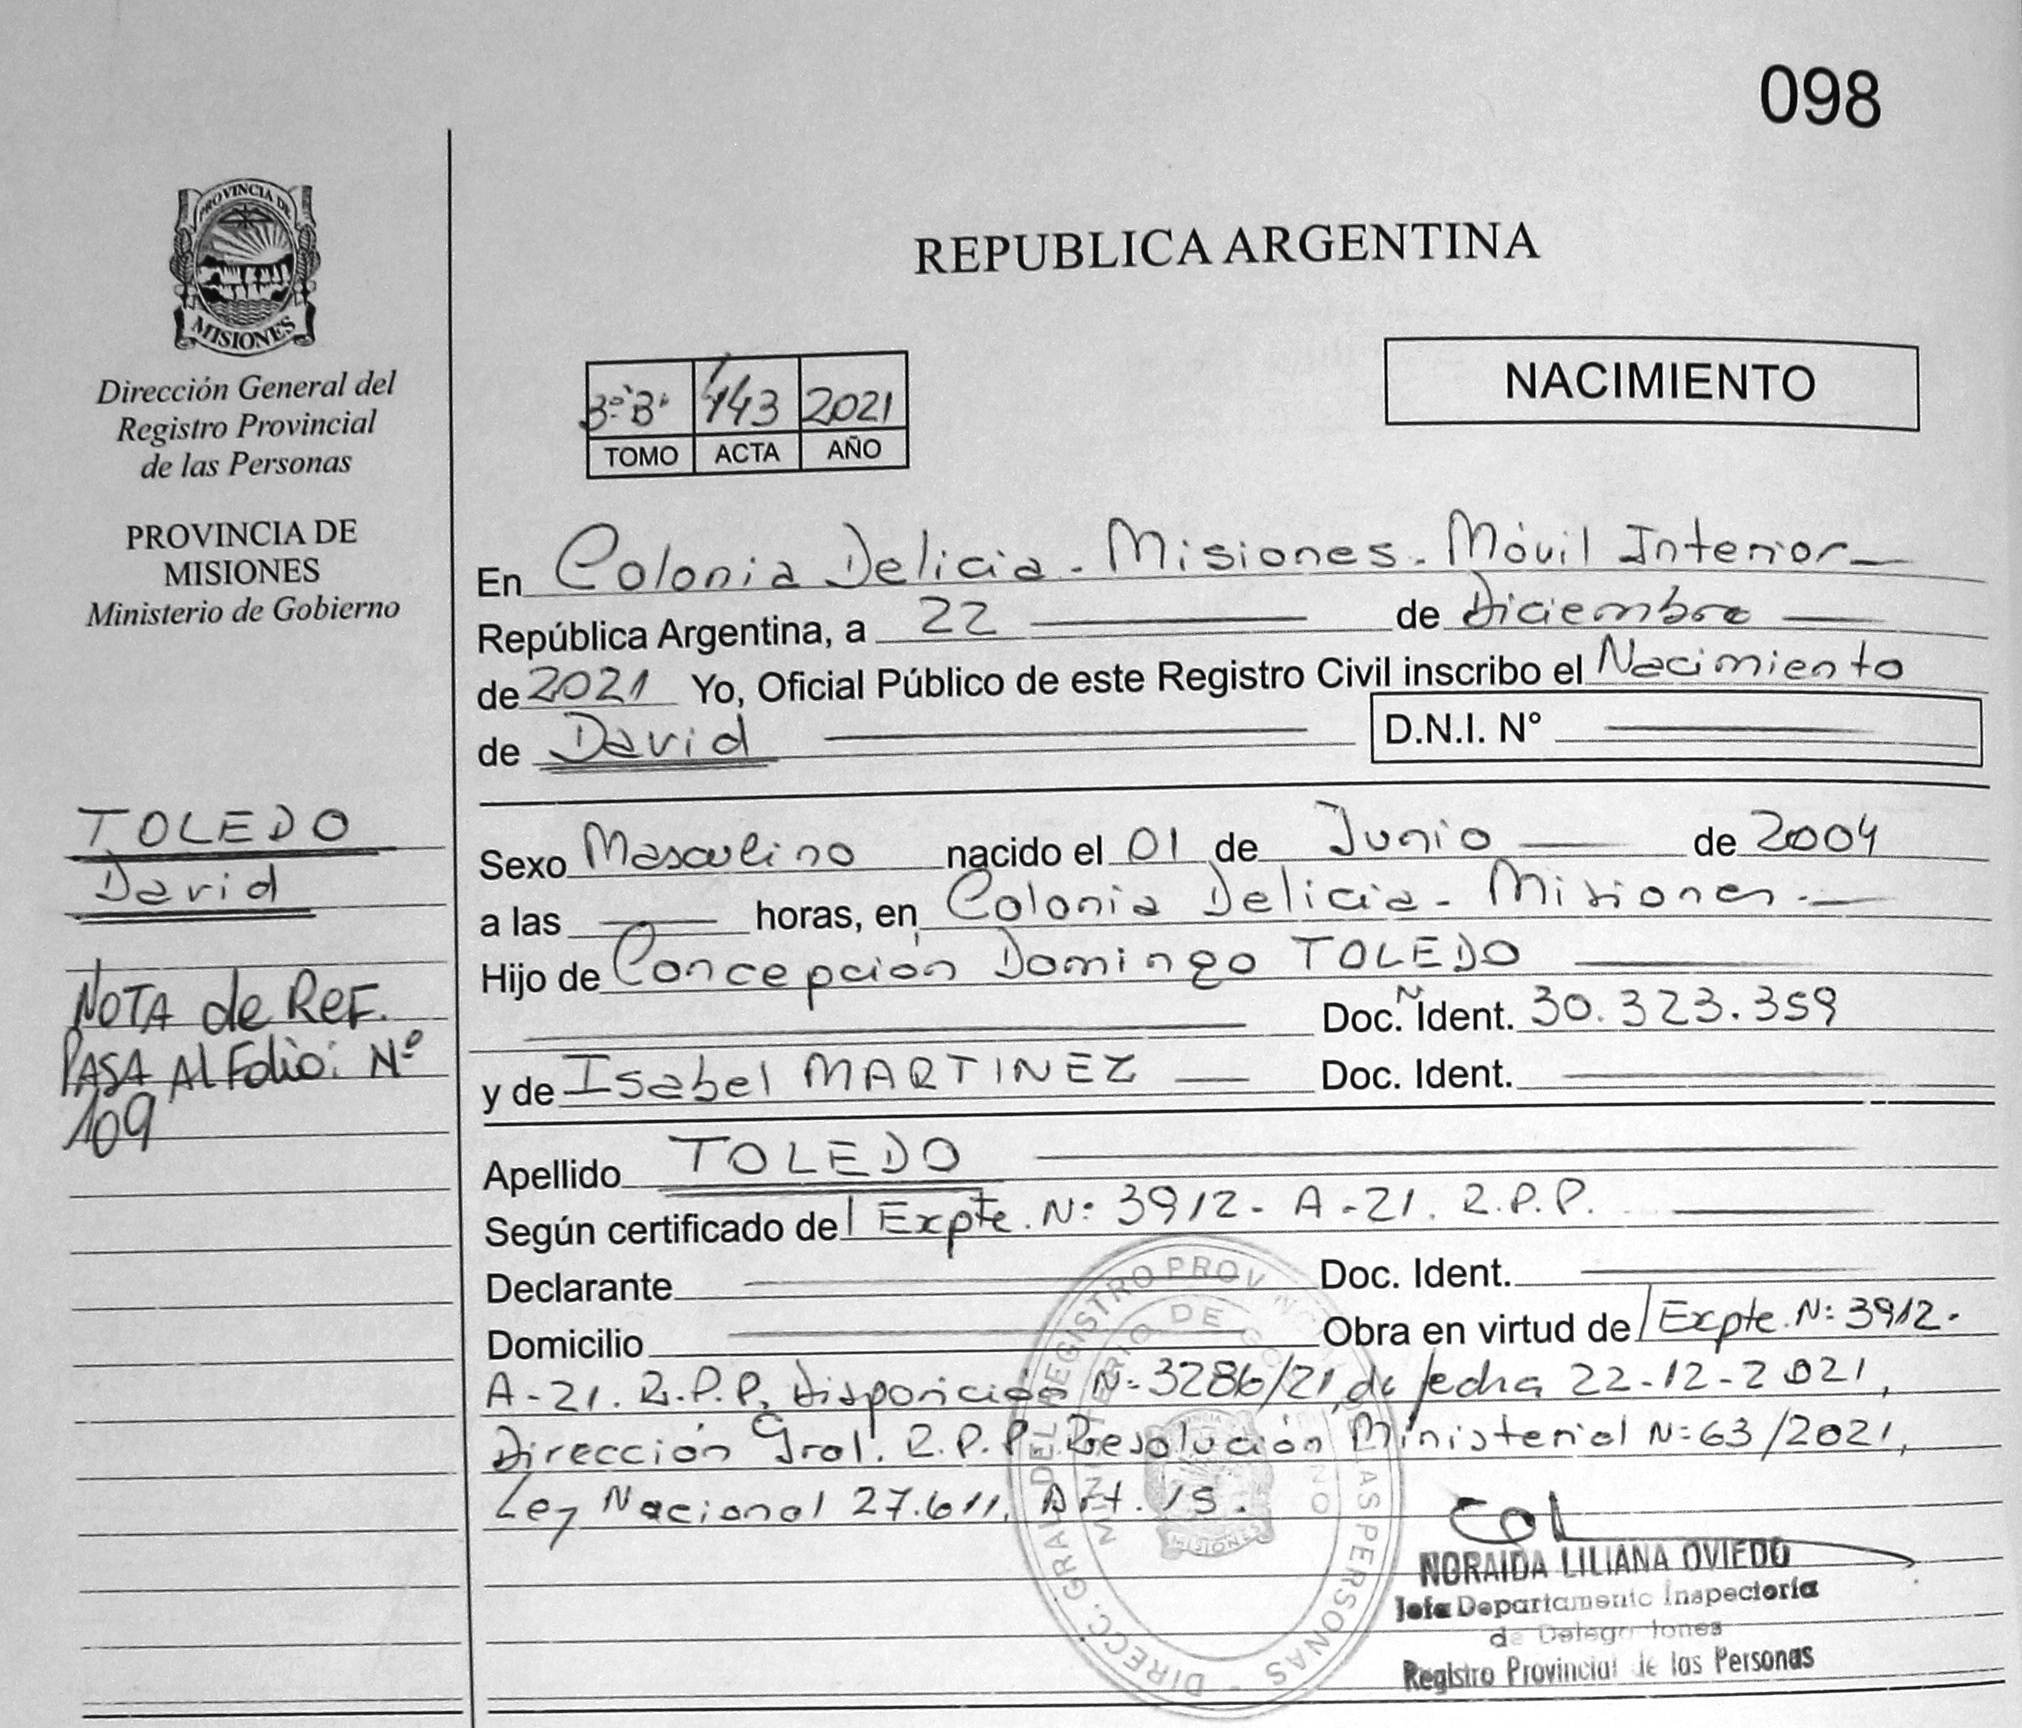 098
PROVINCIA DE
MISIONES
Dirección General del
Registro Provincial
de las Personas
PROVINCIA DE
MISIONES
Ministerio de Gobierno
REPUBLICA ARGENTINA
NACIMIENTO
3º"B" 143 2021
TOMO ACTA AÑO
En Colonia Delicia - Misiones - Móvil Interior
República Argentina, a 22 de Diciembre
de 2021 Yo, Oficial Público de este Registro Civil inscribo el Nacimiento
de David D.N.I. N°
TOLEDO
David
NOTA de REF.
PASA Al Folio: Nº
109
Sexo Masculino nacido el 01 de Junio de 2004
a las horas, en Colonia Delicia - Misiones -
Hijo de Concepción Domingo TOLEDO
Doc. N Ident. 30.323.359
y de Isabel MARTINEZ Doc. Ident.
Apellido TOLEDO
Según certificado de Expte. Nº 3912 - A - 21. R.P.P.
Declarante Doc. Ident.
Domicilio Obra en virtud de Expte. Nº 3912 -
A - 21. R.P.P, Disposición Nº 3286/21, de fecha 22-12-2021,
Dirección Gral. R.P.P. Resolución Ministerial Nº 63/2021,
Ley Nacional 27.611, Art. 15.
DIRECC. GRAL. DEL REGISTRO PROV. DE LAS PERSONAS
MINISTERIO DE GOBIERNO
MISIONES
NORAIDA LILIANA OVIEDO
Jefa Departamento Inspectoría
de Delegaciones
Registro Provincial de las Personas